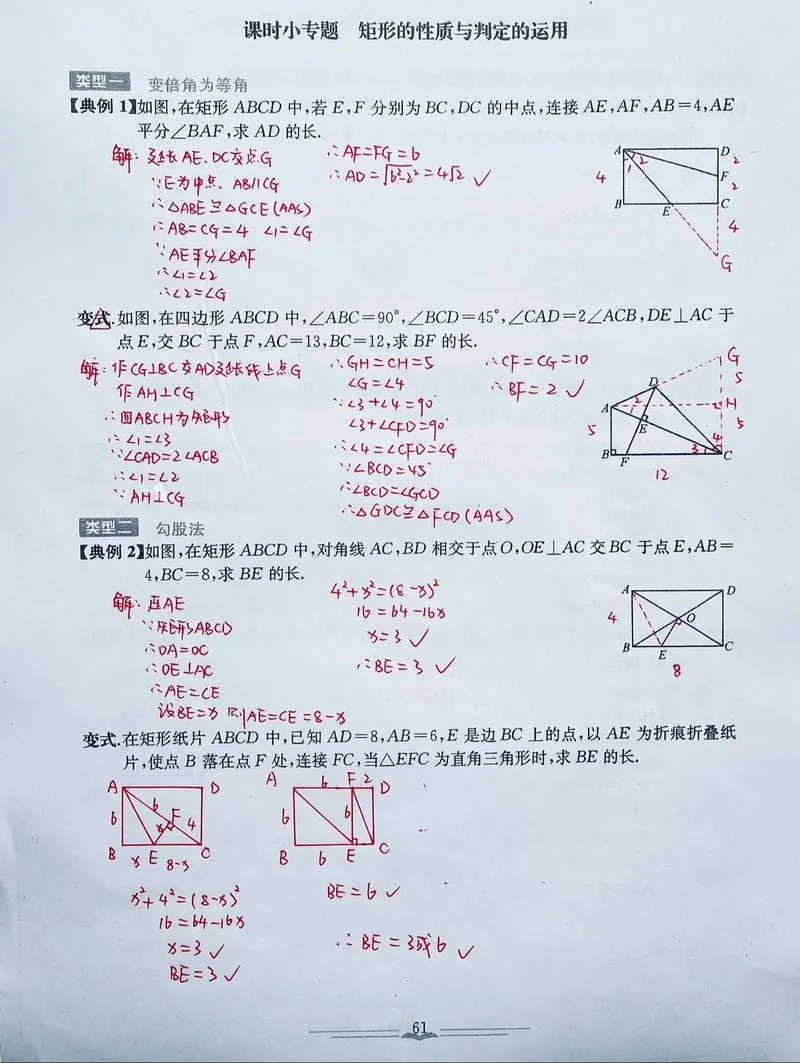 课时小专题 矩形的性质与判定的运用
类型一 变倍角为等角
【典例1】如图,在矩形 ABCD 中,若 E,F 分别为 BC,DC 的中点,连接 AE,AF,AB=4,AE
平分∠BAF,求 AD 的长.
解: 延长AE、DC交点G
∵E为中点、AB∥CG
∴△ABE≌△GCE(AAS)
∴AB=CG=4 ∠1=∠G
∵AE平分∠BAF
∴∠1=∠2
∴∠2=∠G
∴AF=FG=6
∴AD=√6²-2²=4√2 ✓
A D 2
1 2
4 F 2
B E C
4
G
变式.如图,在四边形 ABCD 中,∠ABC=90°,∠BCD=45°,∠CAD=2∠ACB,DE⊥AC 于
点 E,交 BC 于点 F,AC=13,BC=12,求 BF 的长.
解: 作CG⊥BC交AD延长线上点G
作AH⊥CG
∴四ABCH为矩形
∴∠1=∠3
∵∠CAD=2∠ACB
∴∠1=∠2
∵AH⊥CG
∴GH=CH=5
∠G=∠4
∵∠3+∠4=90°
∠3+∠CFD=90°
∴∠4=∠CFD=∠G
∵∠BCD=45°
∴∠BCD=∠GCD
∴△GDC≌△FCD(AAS)
∴CF=CG=10
∴BF=2 ✓
G
5
D
A 2 1 H
5 E 5
4
B F 3 C
12
类型二 勾股法
【典例2】如图,在矩形 ABCD 中,对角线 AC,BD 相交于点 O,OE⊥AC 交 BC 于点 E,AB=
4,BC=8,求 BE 的长.
解: 连AE
∵矩形ABCD
∴OA=OC
∵OE⊥AC
∴AE=CE
设BE=x 则AE=CE=8-x
4²+x²=(8-x)²
16=64-16x
x=3 ✓
∴BE=3 ✓
A D
4 O
B E C
8
变式.在矩形纸片 ABCD 中,已知 AD=8,AB=6,E 是边 BC 上的点,以 AE 为折痕折叠纸
片,使点 B 落在点 F 处,连接 FC,当△EFC 为直角三角形时,求 BE 的长.
A D
6 6 F
x 4
B x E 8-x C
x²+4²=(8-x)²
16=64-16x
x=3 ✓
BE=3 ✓
A 6 F 2 D
6 6
B 6 E C
BE=6 ✓
∴BE=3或6 ✓
61